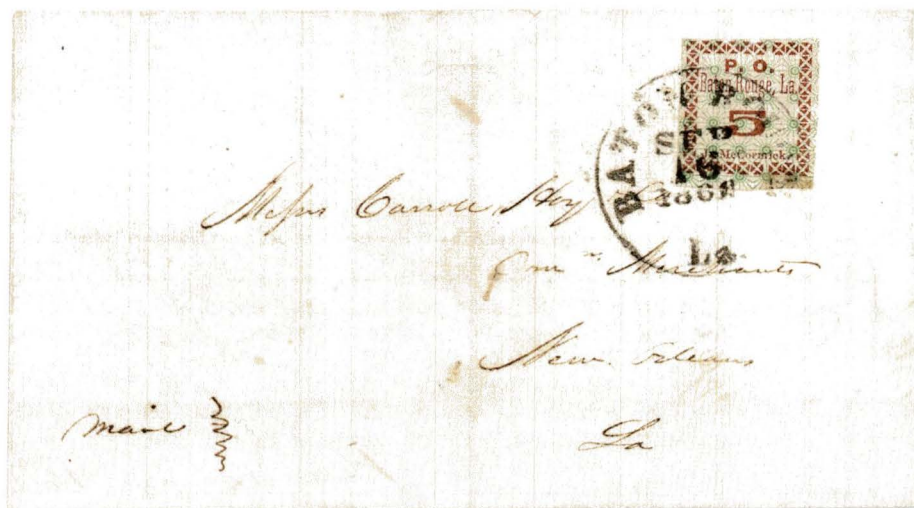 P. O.
Baton Rouge, La.
5
J. McCormick.
BATON R
SEP
16
1861
La
Messrs Carroll, Hoy
Com n. Merchants
New Orleans
La
mail